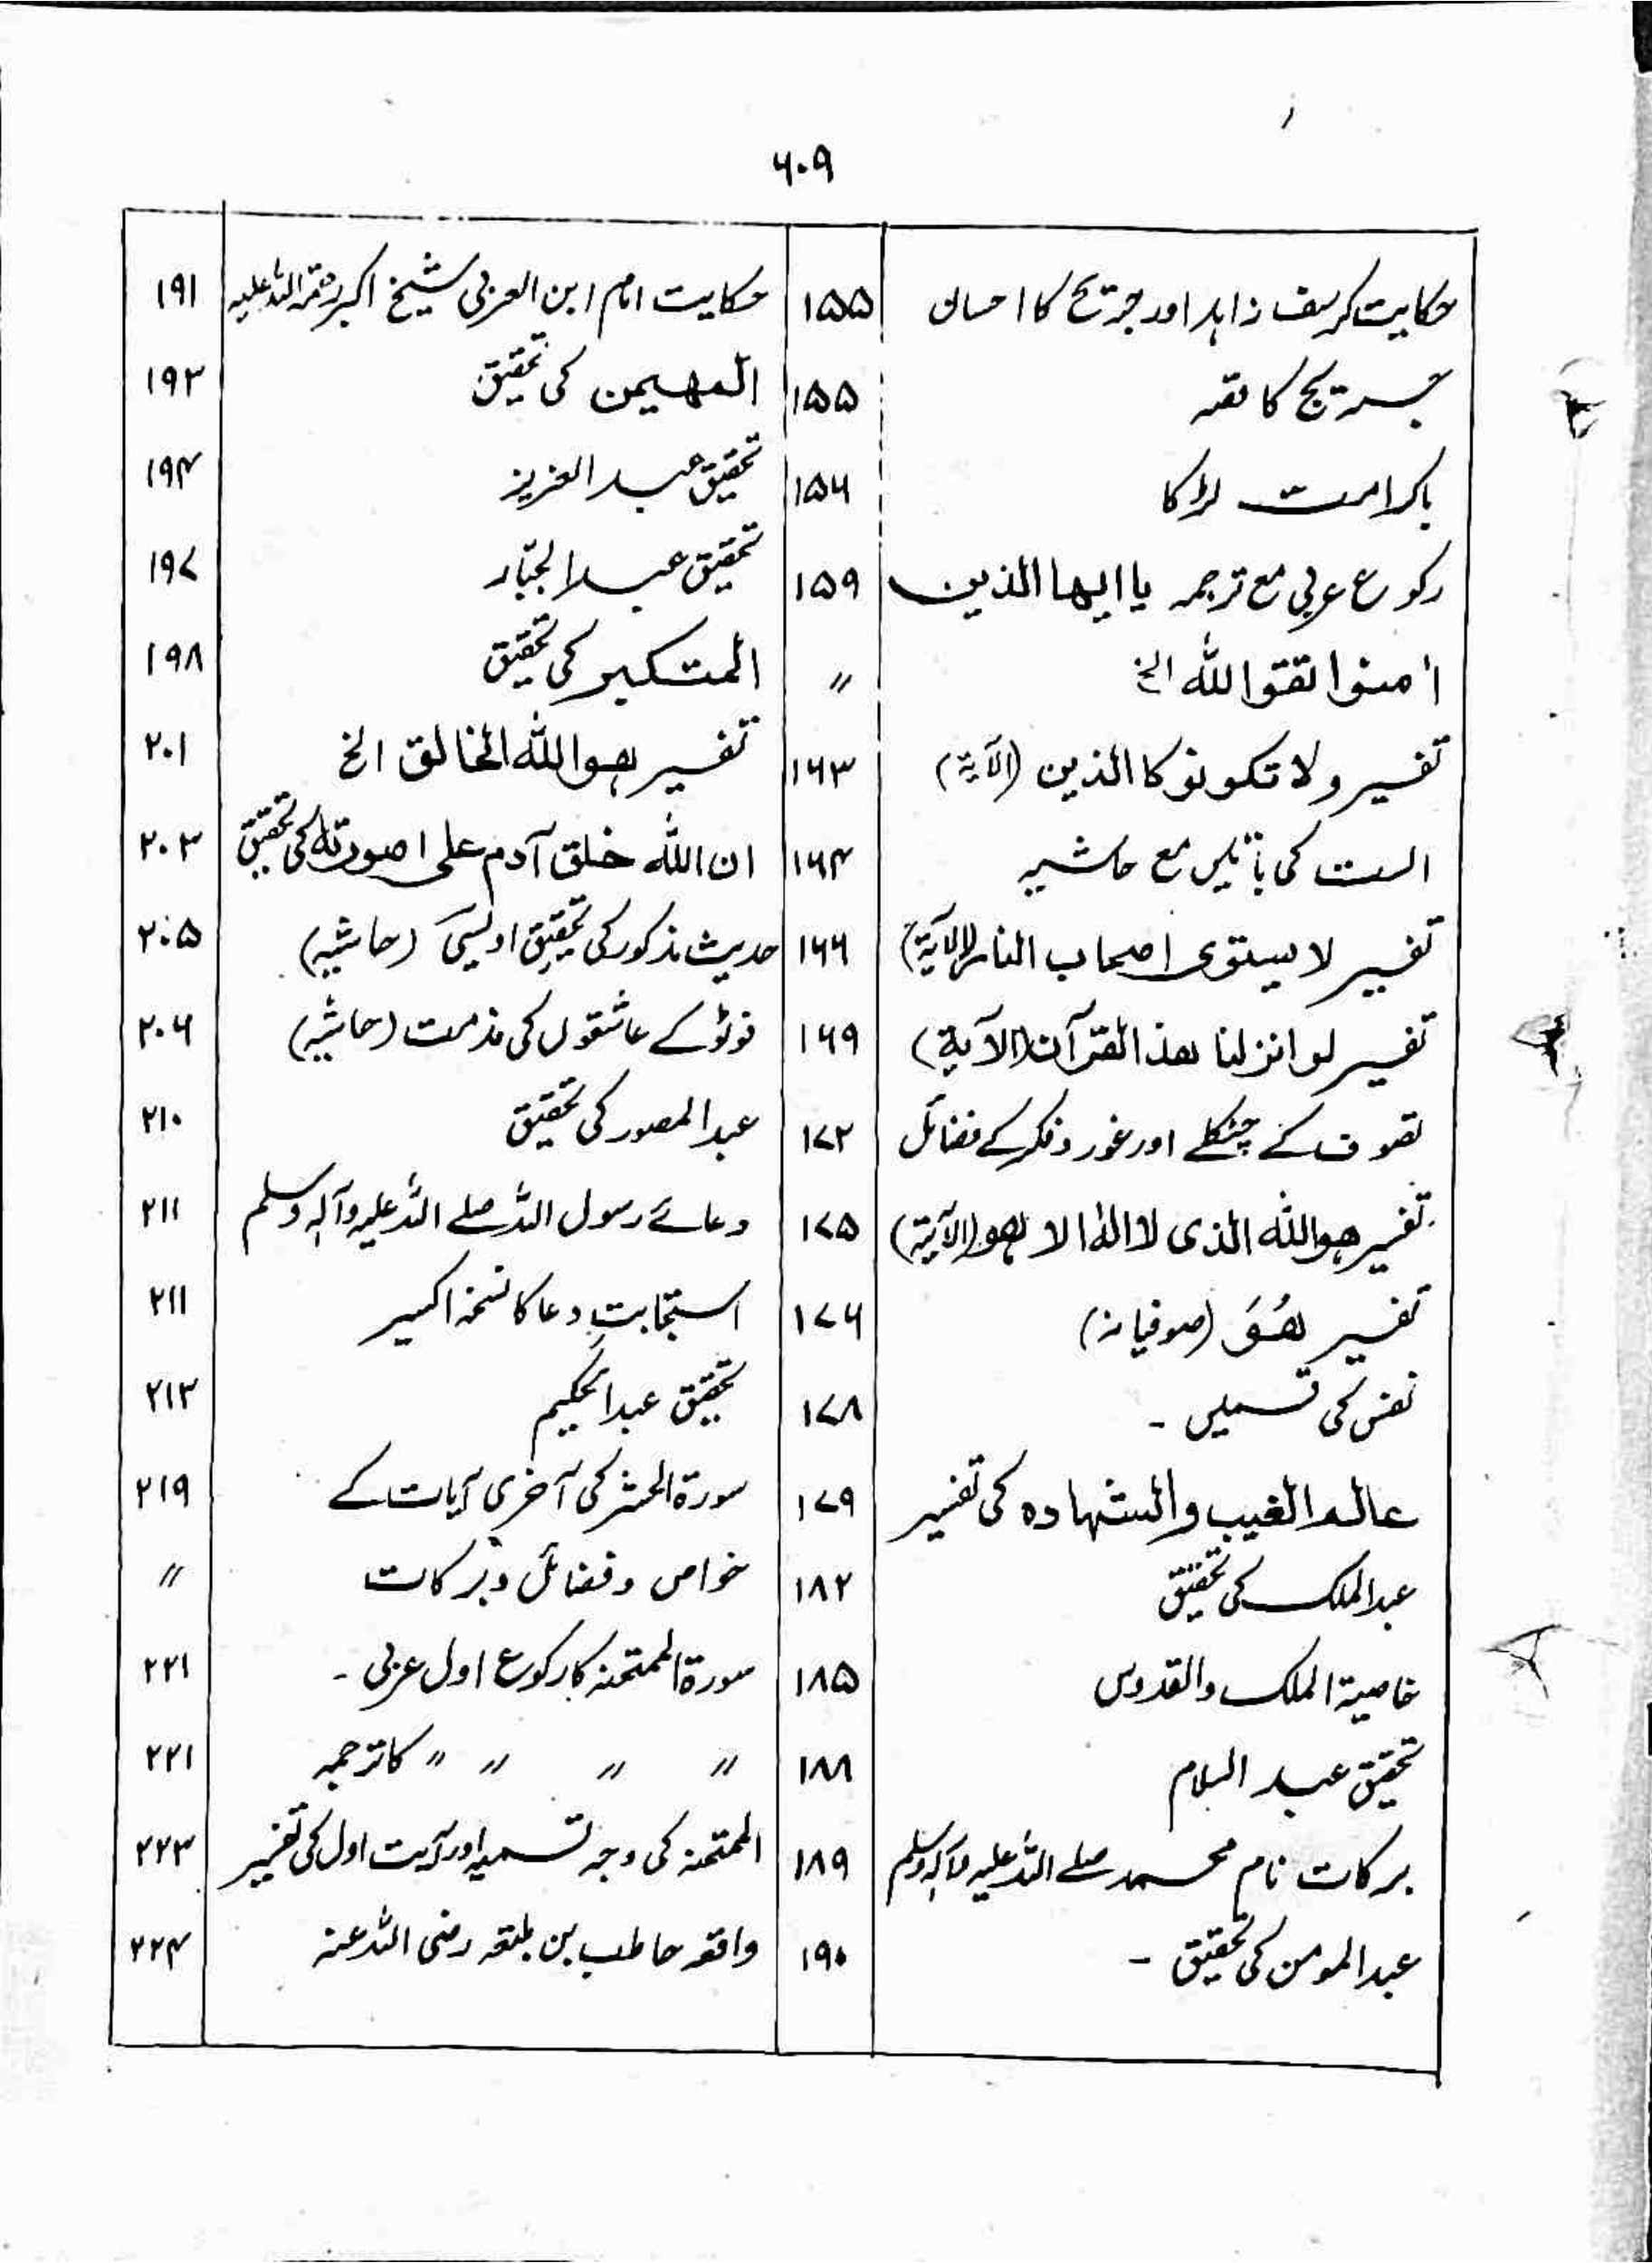 ۶۰۹
حکایت کرسف زاہد اور جریج کا احسان ۱۵۵
جریج کا قصہ ۱۵۵
باکرامت لڑکا ۱۵۶
رکوع عربی مع ترجمہ یا ایها الذین ۱۵۹
اٰمنوا تقوا اللّٰه الخ 〃
تفسیر ولا تکونو کا الذین (الآیۃ) ۱۶۳
الست کی باتیں مع حاشیہ ۱۶۴
تفسیر لا یستوی اصحاب النار (الآیۃ) ۱۶۶
تفسیر لو انزلنا ھذا القرآن (الآیۃ) ۱۶۹
تصوف کے چٹکلے اور غور و فکر کے فضائل ۱۷۲
تفسیر ھو اللّٰه الذی لا الٰه الا ھو (الآیۃ) ۱۷۵
تفسیر ھُوَ (صوفیانہ) ۱۷۶
نفس کی قسمیں ۔ ۱۷۸
عالم الغیب والشهاده کی تفسیر ۱۷۹
عبد الملک کی تحقیق ۱۸۲
خاصیۃ الملک والقدوس ۱۸۵
تحقیق عبد السلام ۱۸۸
برکات نام محمد صلے اللہ علیہ وآلہ وسلم ۱۸۹
عبد المومن کی تحقیق ۔ ۱۹۰
حکایت امام ابن العربی شیخ اکبر رحمۃ اللہ علیہ ۱۹۱
المهیمن کی تحقیق ۱۹۲
تحقیق عبد العزیز ۱۹۴
تحقیق عبد الجبّار ۱۹۷
المتکبر کی تحقیق ۱۹۸
تفسیر ھو اللّٰه الخالق الخ ۲۰۱
ان اللّٰه خلق آدم علی اصورته کی تحقیق ۲۰۳
حدیث مذکور کی تحقیق اویسی (حاشیہ) ۲۰۵
فوٹو کے عاشقوں کی مذمت (حاشیہ) ۲۰۶
عبد المصور کی تحقیق ۲۱۰
دعائے رسول اللہ صلے اللہ علیہ وآلہ وسلم ۲۱۱
استجابتِ دعا کا نسخہ اکسیر ۲۱۱
تحقیق عبد الحکیم ۲۱۳
سورۃ الحشر کی آخری آیات کے ۲۱۹
خواص و فضائل و برکات 〃
سورۃ الممتحنہ کا رکوع اول عربی ۔ ۲۲۱
〃 〃 〃 〃 کا ترجمہ ۲۲۱
الممتحنہ کی وجہ تسمیہ اور آیت اول کی تفسیر ۲۲۳
واقعہ حاطب بن بلتعہ رضی اللہ عنہ ۲۲۴